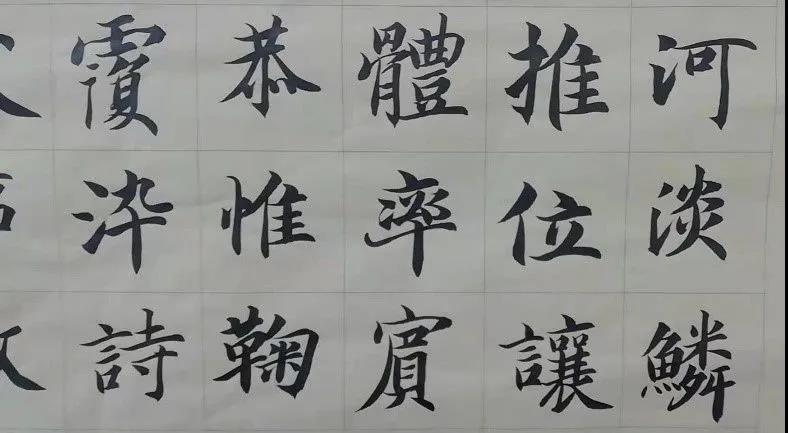 河淡鱗
推位讓
體率賔
恭惟鞠
覆染詩